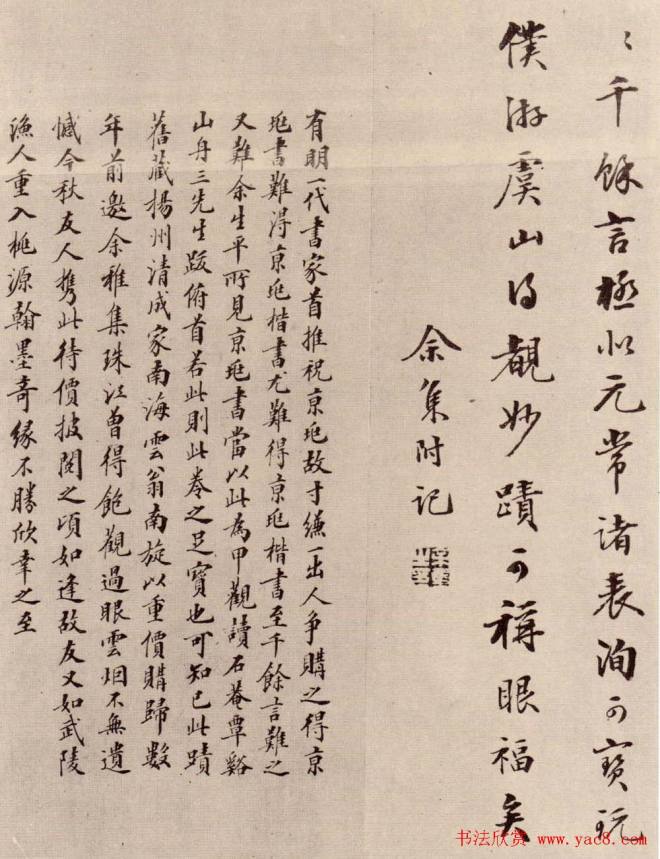 〻千餘言極似元常諸表洵可寶玩
僕游虞山得觀妙蹟可稱眼福矣
余集附记
有明一代書家首推祝京兆故寸縑一出人争購之得京
兆書難得京兆楷書尤難得京兆楷書至千餘言難之
又難余生平所見京兆書當以此為甲觀讀石菴覃谿
山舟三先生跋俯首若此則此卷之足寶也可知已此蹟
舊藏揚州清成家南海雲翁南旋以重價購歸數
年前邀余雅集珠江曾得飽觀過眼雲烟不無遺
憾今秋友人携此待價披閱之頃如逢故友又如武陵
漁人重入桃源翰墨奇緣不勝欣幸之至
书法欣赏 www.yac8.com